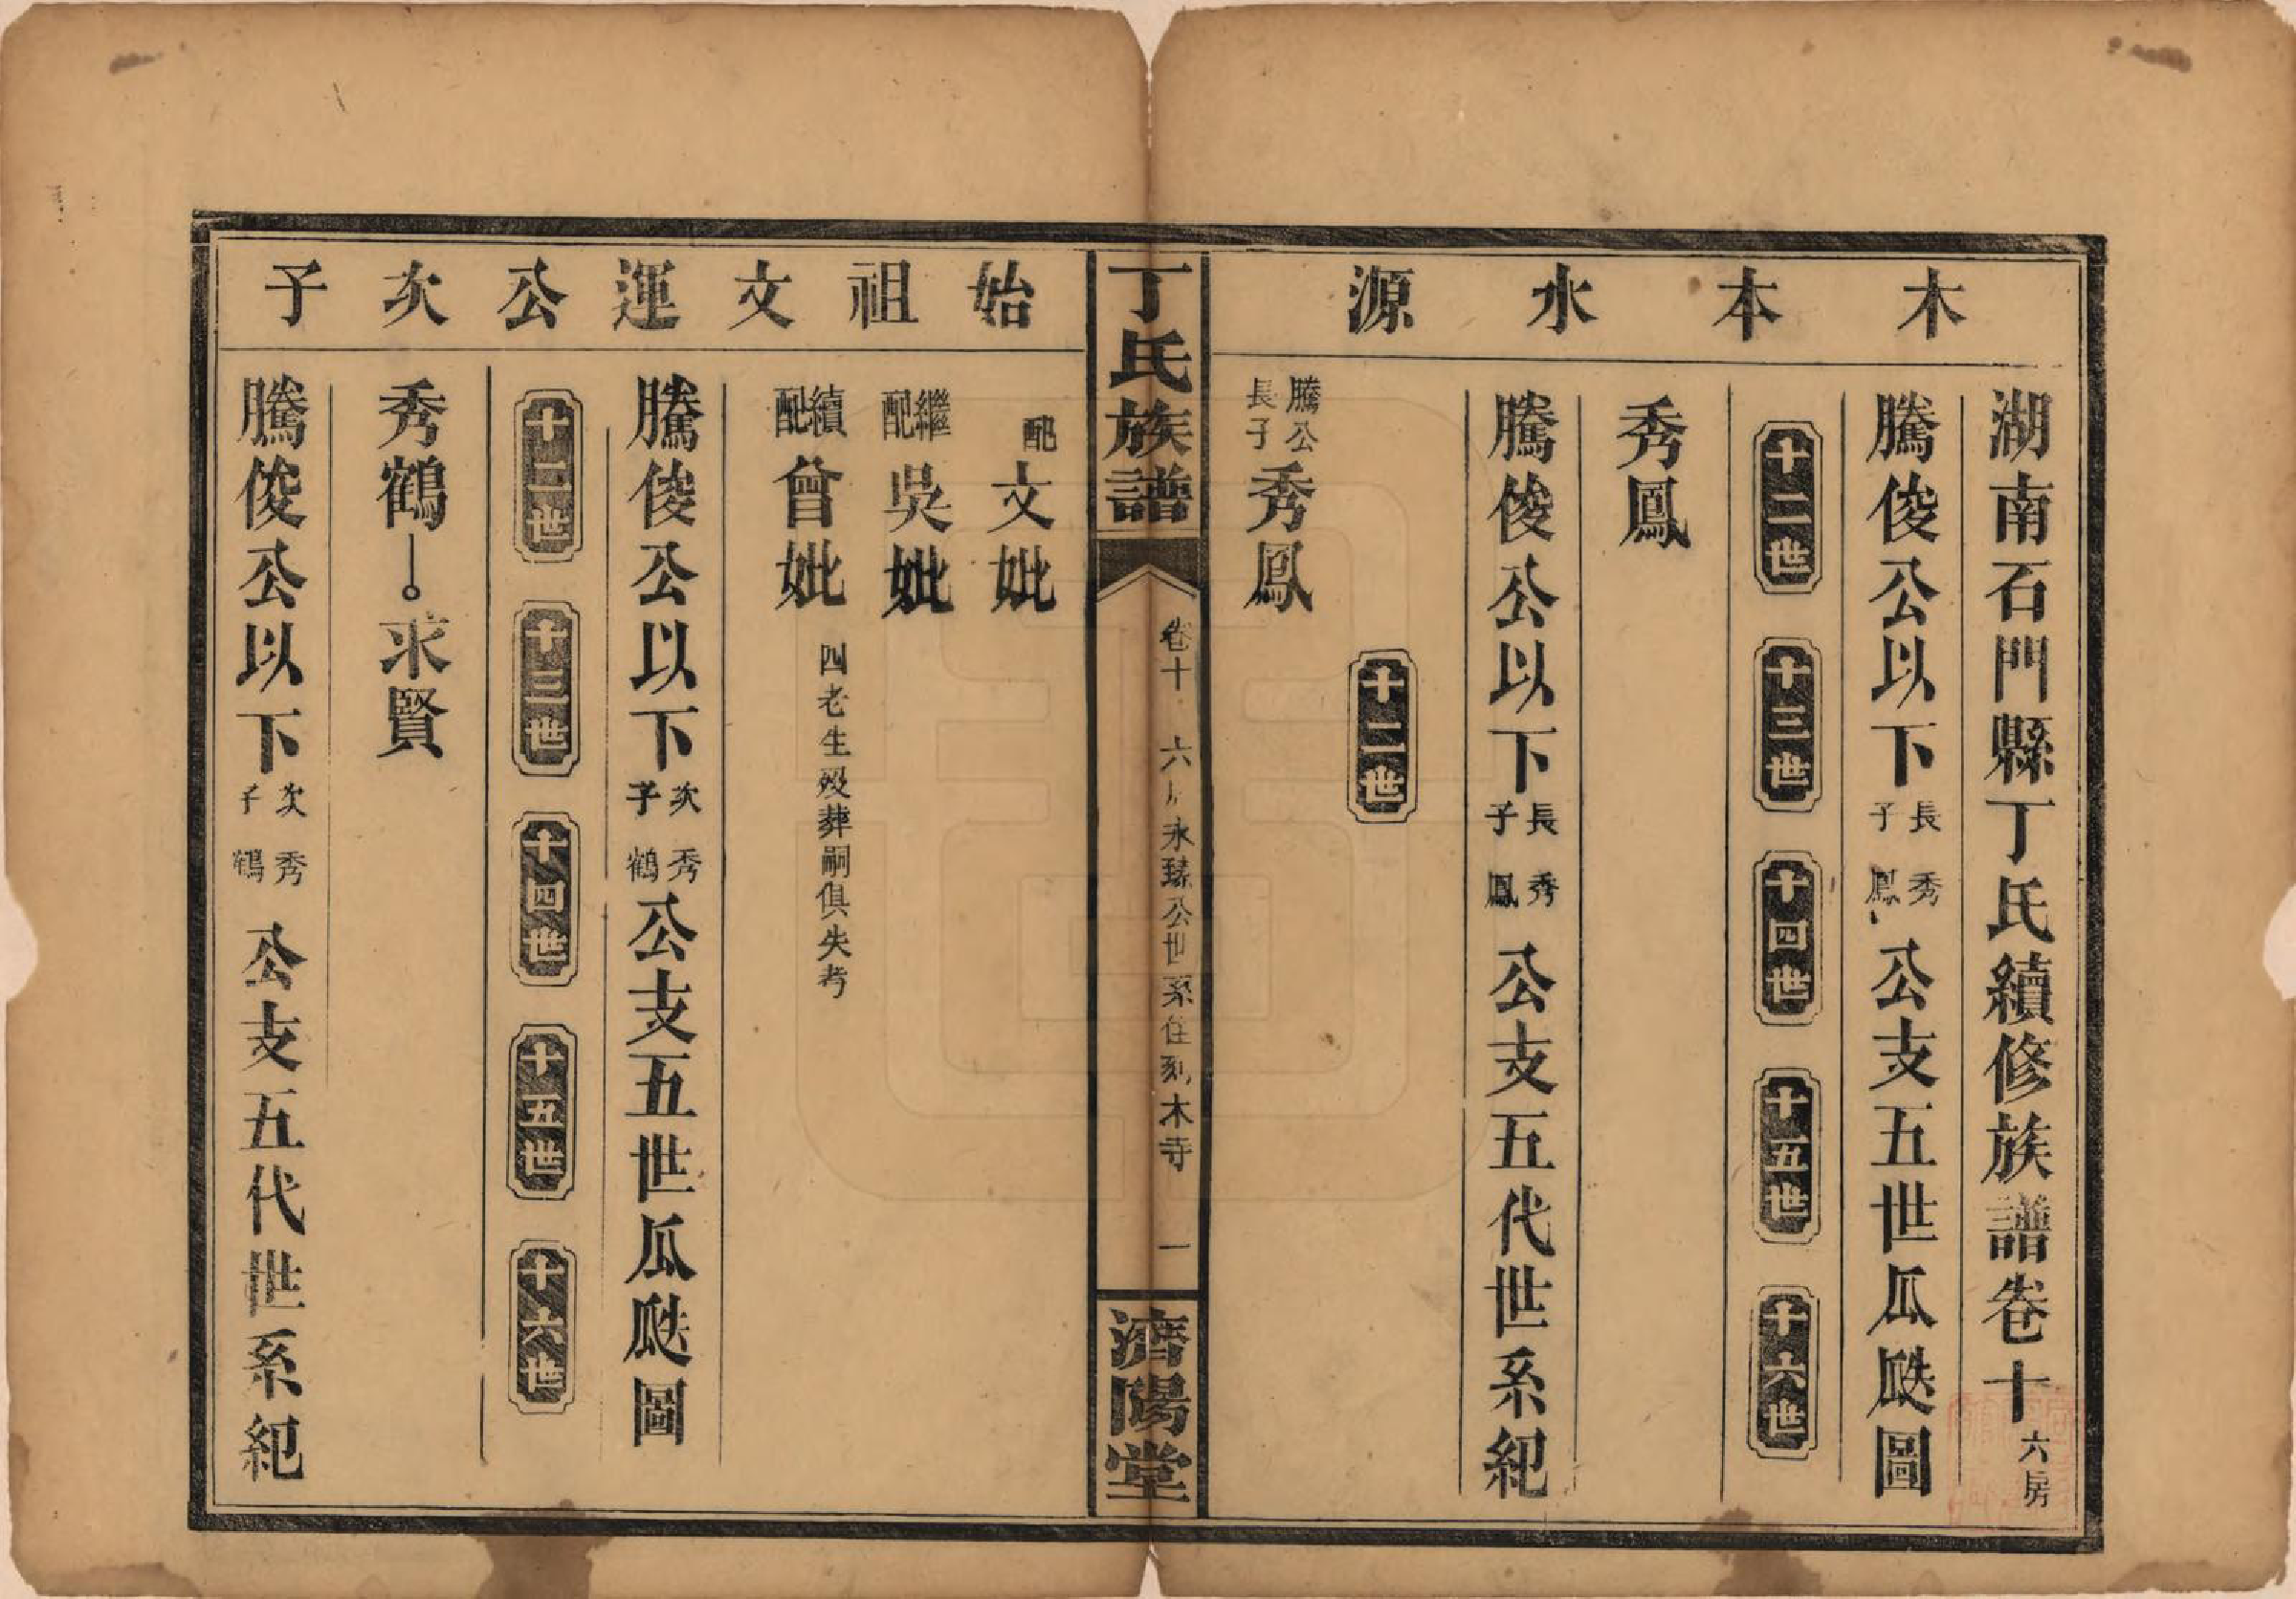 木本水源
湖南石門縣丁氏續修族譜卷十 六房
騰俊公以下長子秀鳳公支五世瓜瓞圖
十二世 十三世 十四世 十五世 十六世
秀鳳
騰俊公以下長子秀鳳公支五代世系紀
十二世
騰公長子秀鳳
丁氏族譜
卷十 六房永 公世系住刻木寺 一
濟陽堂
始祖文運公次子
配文妣
繼配吳妣
續配曾妣 四老生歿葬嗣俱失考
騰俊公以下次子秀鶴公支五世瓜瓞圖
十二世 十三世 十四世 十五世 十六世
秀鶴 求賢
騰俊公以下次子秀鶴公支五代世系紀